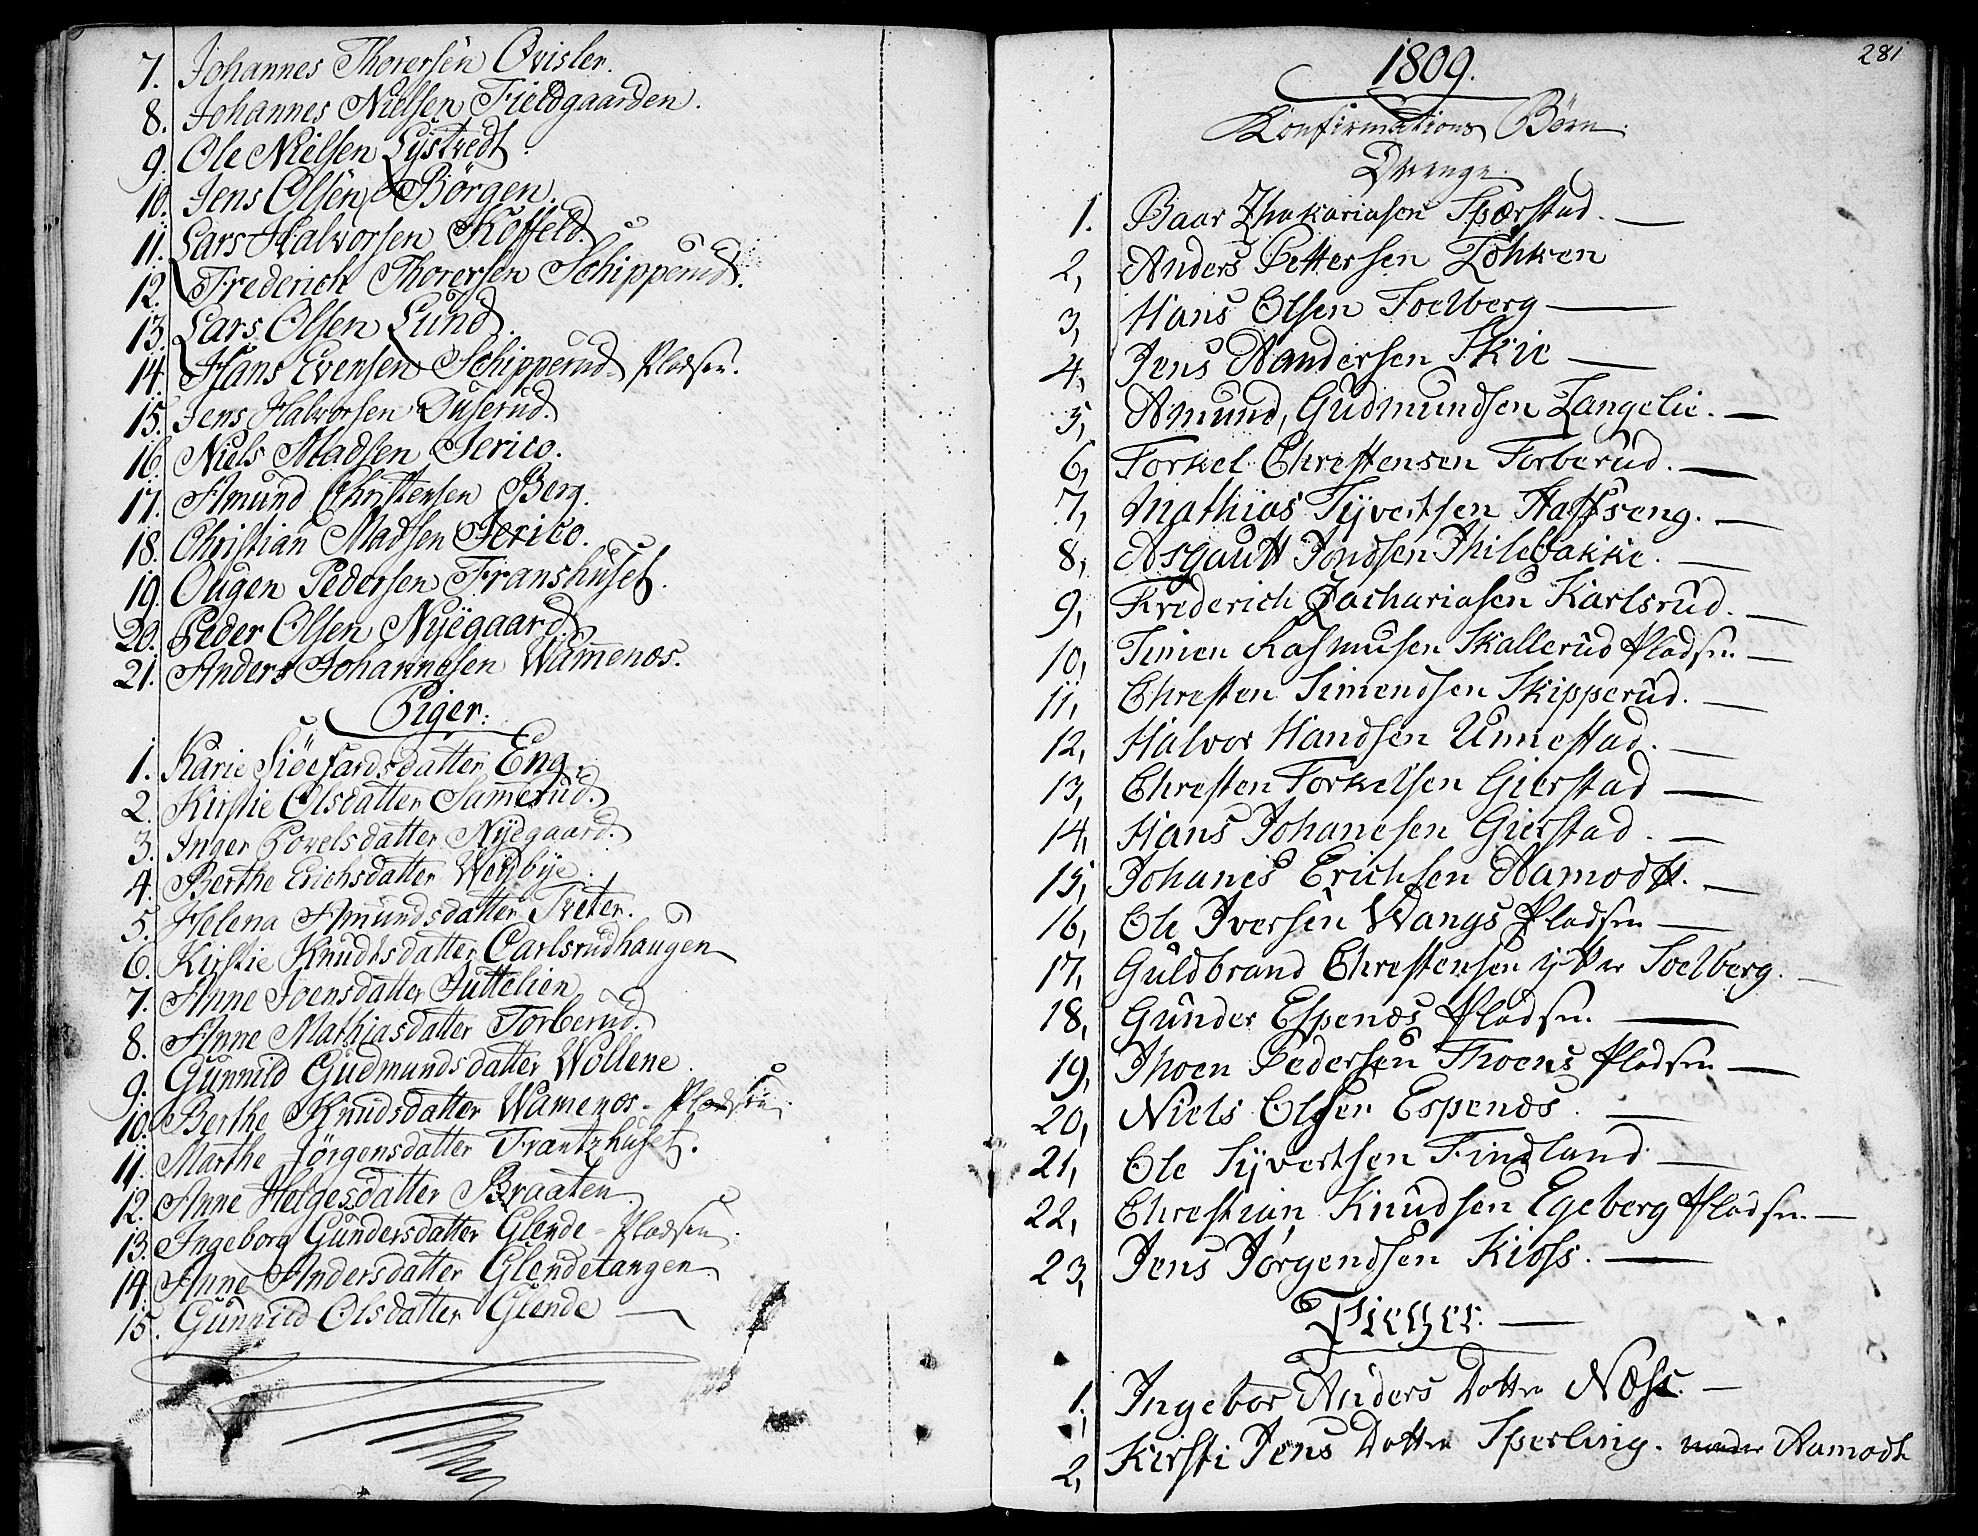 7. Johannes Thorersen Qvisler.
8. Johannes Nielsen Fieldgaarden.
9. Ole Nielsen Lystvedt.
10. Jens Olsen Börgen.
11. Lars Halvorsen Koffeld.
12. Frederich Thorersen Schipperud.
13. Lars Olsen Lund.
14. Hans Evensen Schipperud Pladsen.
15. Jens Halvorsen Duserud.
16. Niels Madsen Jerico.
17. Amund Christensen Berg.
18. Christian Madsen Jerico.
19. Ougen Pedersen Franshuset.
20. Peder Olsen Nyegaard.
21. Anders Johannesen Wam̅enæs.
Piger:
1. Karie Siöefardsdatter Eng.
2. Kirstie Olsdatter Sam̅erud.
3. Inger Povelsdatter Nyegaard.
4. Berthe Erichsdatter Westbye.
5. Helena Amundsdatter Tveter.
6. Kirstie Knudsdatter Carlsrudhaugen
7. Anne Joensdatter Juttelien
8. Anne Mathiasdatter Torberud.
9. Gunnild Gudmundsdatter Wollene.
10. Berthe Knudsdatter Wamenæs - Pladsen.
11. Marthe Jörgensdatter Frantzhuset.
12. Anne Helgesdatter Braaten.
13. Ingeborg Gundersdatter Glende - Pladsen.
14. Anne Andersdatter Glendetangen.
15. Gunnild Olsdatter Glende
281
1809.
Konfirmations Börn.
Drenge
1. Baar Zhakariasen Spærstad.
2, Anders Pettersen Löhken
3, Hans Olsen Soelberg
4, Jens Aandersen Skie
5, Amund, Gudmundsen Langelie.
6, Torkel Chrestensen Torberud.
7, Mathias Syvertsen Haffseng.
8, Asgautt Jondsen Philebakke.
9, Frederich Zachariasen Karlsrud.
10, Simen Rasmusen Skallerud Pladsen
11, Chresten Simendsen Skipperud.
12, Halvor Handsen Unnestad.
13, Chresten Torkelsen Gierstad
14, Hans Johanesen Gierstad.
15, Johanes Erichsen Aamodtt.
16, Ole Iversen Wangs Pladsen
17, Guldbrand Chrestensen ytter Soelberg.
18, Gunder Espenæs Pladsen.
19, Thoen Pedersen Thoens Pladsen
20, Niels Olsen Espenæs.
21, Ole Syvertsen Findland
22, Chrestian Knudsen Egeberg Pladsen.
23, Jens Jörgendsen Kioss.
Pieger.
1. Ingebor Anders Dotter Næss.
2, Kirsti Jens Dotter Sperling. under Aamodt